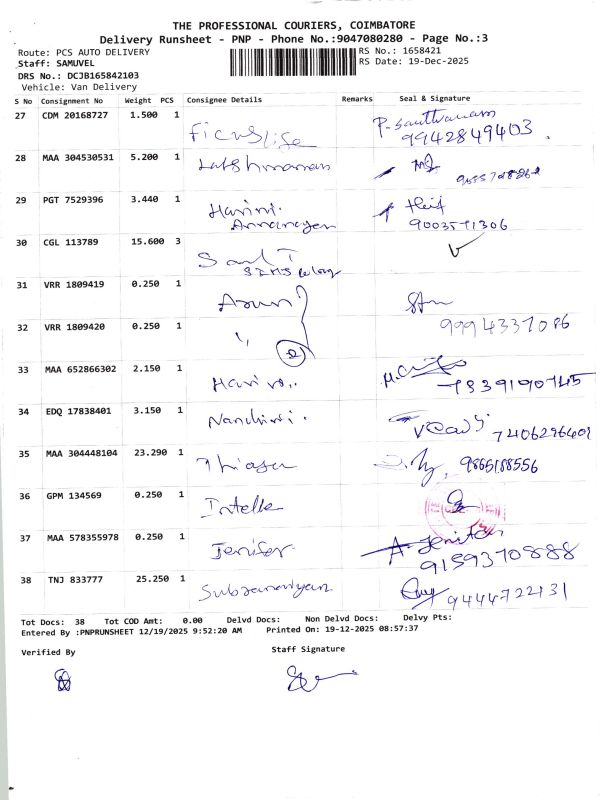 THE PROFESSIONAL COURIERS, COIMBATORE
Delivery Runsheet - PNP - Phone No.:9047080280 - Page No.:3
Route: PCS AUTO DELIVERY RS No.: 1658421
Staff: SAMUVEL RS Date: 19-Dec-2025
DRS No.: DCJB165842103
Vehicle: Van Delivery
S No Consignment No Weight PCS Consignee Details Remarks Seal & Signature
27 CDM 20168727 1.500 1 Ficus life P. Santhanam
9942849403
28 MAA 304530531 5.200 1 Lakshmanan
29 PGT 7529396 3.440 1 Harini
Annanagar
30 CGL 113789 15.600 3
31 VRR 1809419 0.250 1 Arun
32 VRR 1809420 0.250 1 " 2 9994337086
33 MAA 652866302 2.150 1 Harini
34 EDQ 17838401 3.150 1 Nandhini
7406296401
35 MAA 304448104 23.290 1 9865188556
36 GPM 134569 0.250 1 Intelle
37 MAA 578355978 0.250 1 Jenifer A. Jenifer
9159370888
38 TNJ 833777 25.250 1 9444722131
Tot Docs: 38 Tot COD Amt: 0.00 Delvd Docs: Non Delvd Docs: Delvy Pts:
Entered By :PNPRUNSHEET 12/19/2025 9:52:20 AM Printed On: 19-12-2025 08:57:37
Verified By Staff Signature